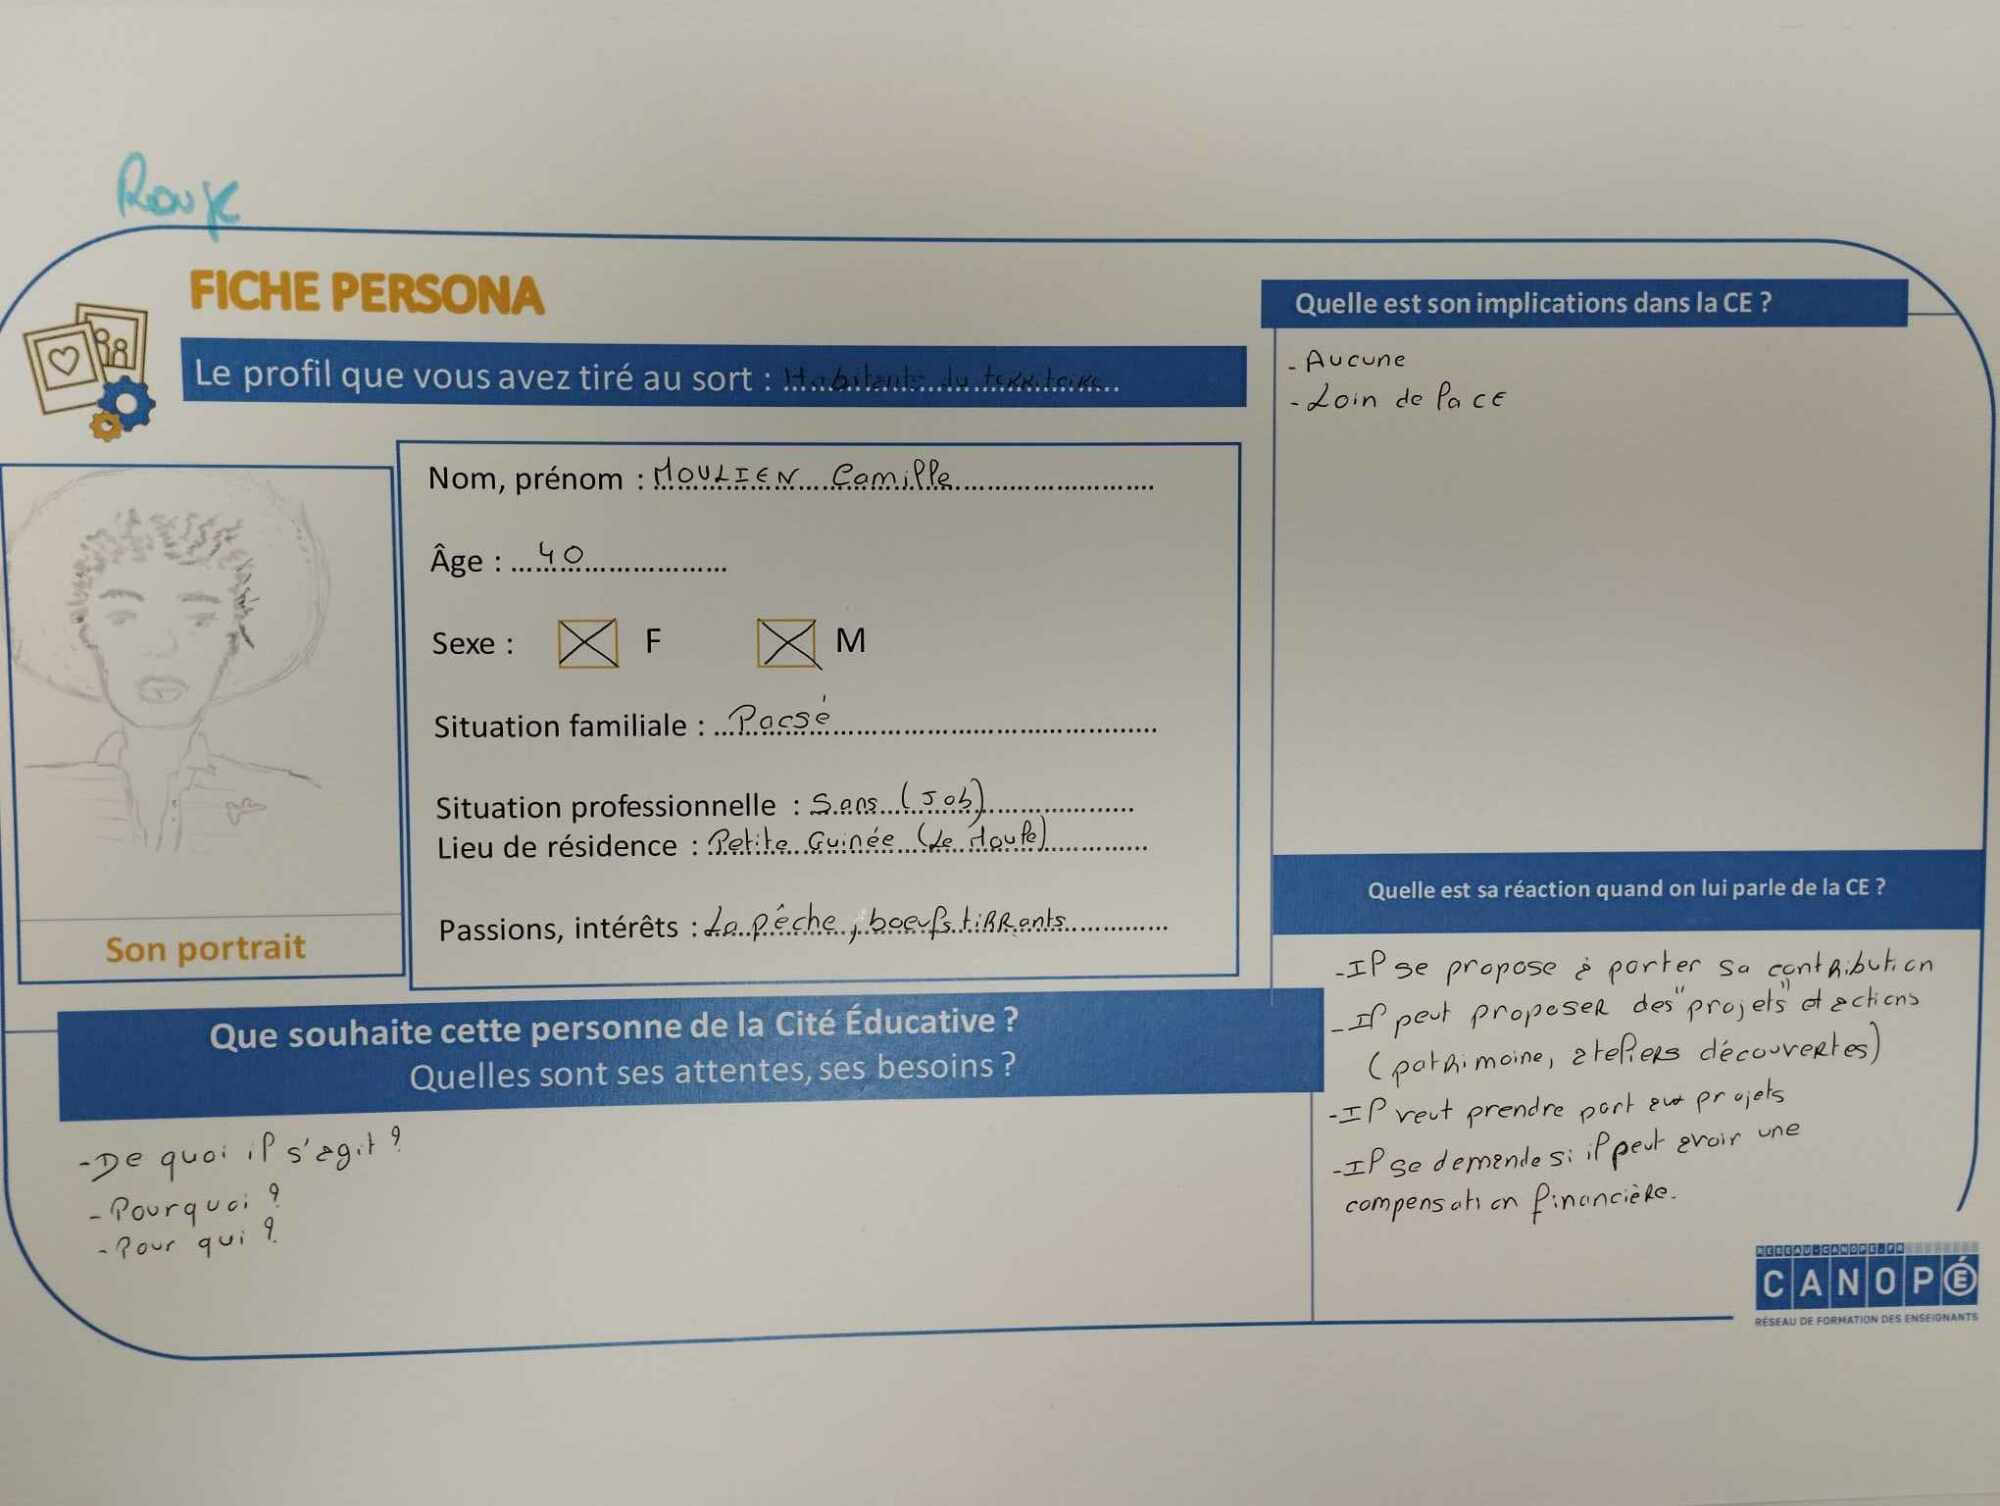 Rouge
FICHE PERSONA
Le profil que vous avez tiré au sort : Habitants du territoire
Nom, prénom : MOULIEN Camille
Âge : 40
Sexe : F M
Situation familiale : Pacsé
Situation professionnelle : Sans (Job)
Lieu de résidence : Petite Guinée (Le Moule)
Passions, intérêts : La pêche, boeufs tiRRants
Son portrait
Que souhaite cette personne de la Cité Éducative ?
Quelles sont ses attentes, ses besoins ?
- De quoi il s'agit ?
- Pourquoi ?
- Pour qui ?
Quelle est son implications dans la CE ?
- Aucune
- Loin de la CE
Quelle est sa réaction quand on lui parle de la CE ?
- Il se propose à porter sa contribution
- Il peut proposer des "projets" et actions
(patrimoine, ateliers découvertes)
- Il veut prendre part aux projets
- Il se demande si il peut avoir une
compensation financière.
RESEAU-CANOPE.FR
CANOPÉ
RÉSEAU DE FORMATION DES ENSEIGNANTS